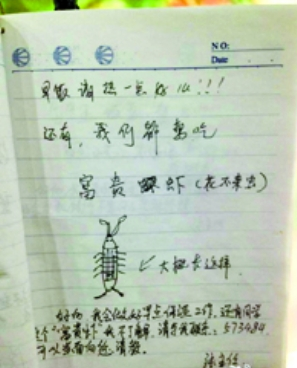 NO:
Date
早饭 谁热一点好么!!!
还有, 我们都想吃
富贵 虾(我不亲虫)
↙大概长这样.
好的, 我会做好早点保温工作, 还有同学
这个"富贵虾"我不了解, 请与我联系: 573484,
可以当面向您请教。